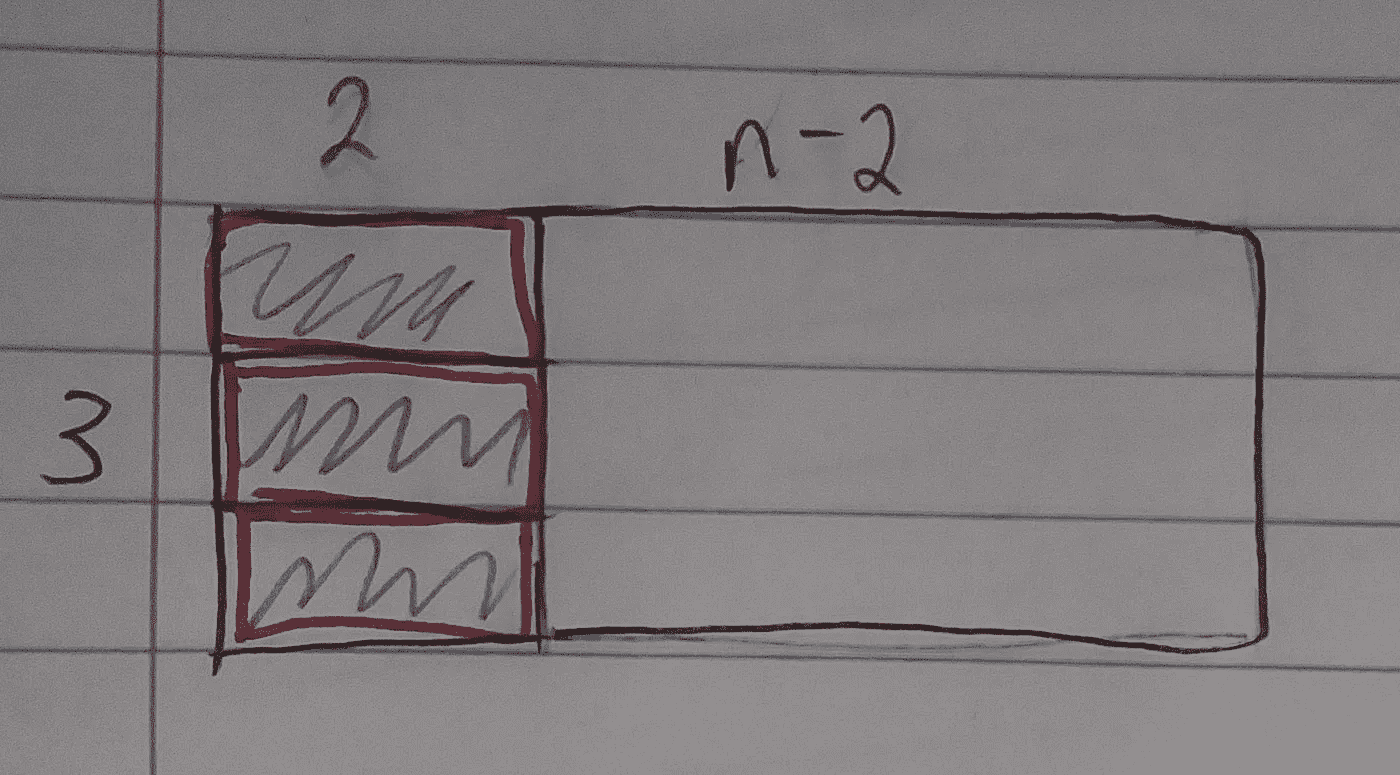 2 n-2
3